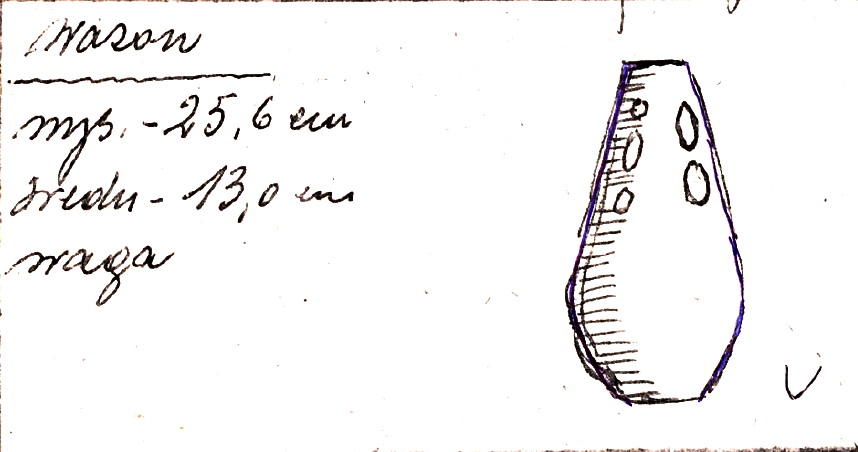 Wazon
wys. - 25,6 cm
średn - 13,0 cm
waga